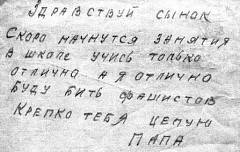 Здравствуй сынок
Скоро начнутся занятия
в школе учись только
отлично а я отлично
буду бить фашистов
Крепко тебя целую
Папа